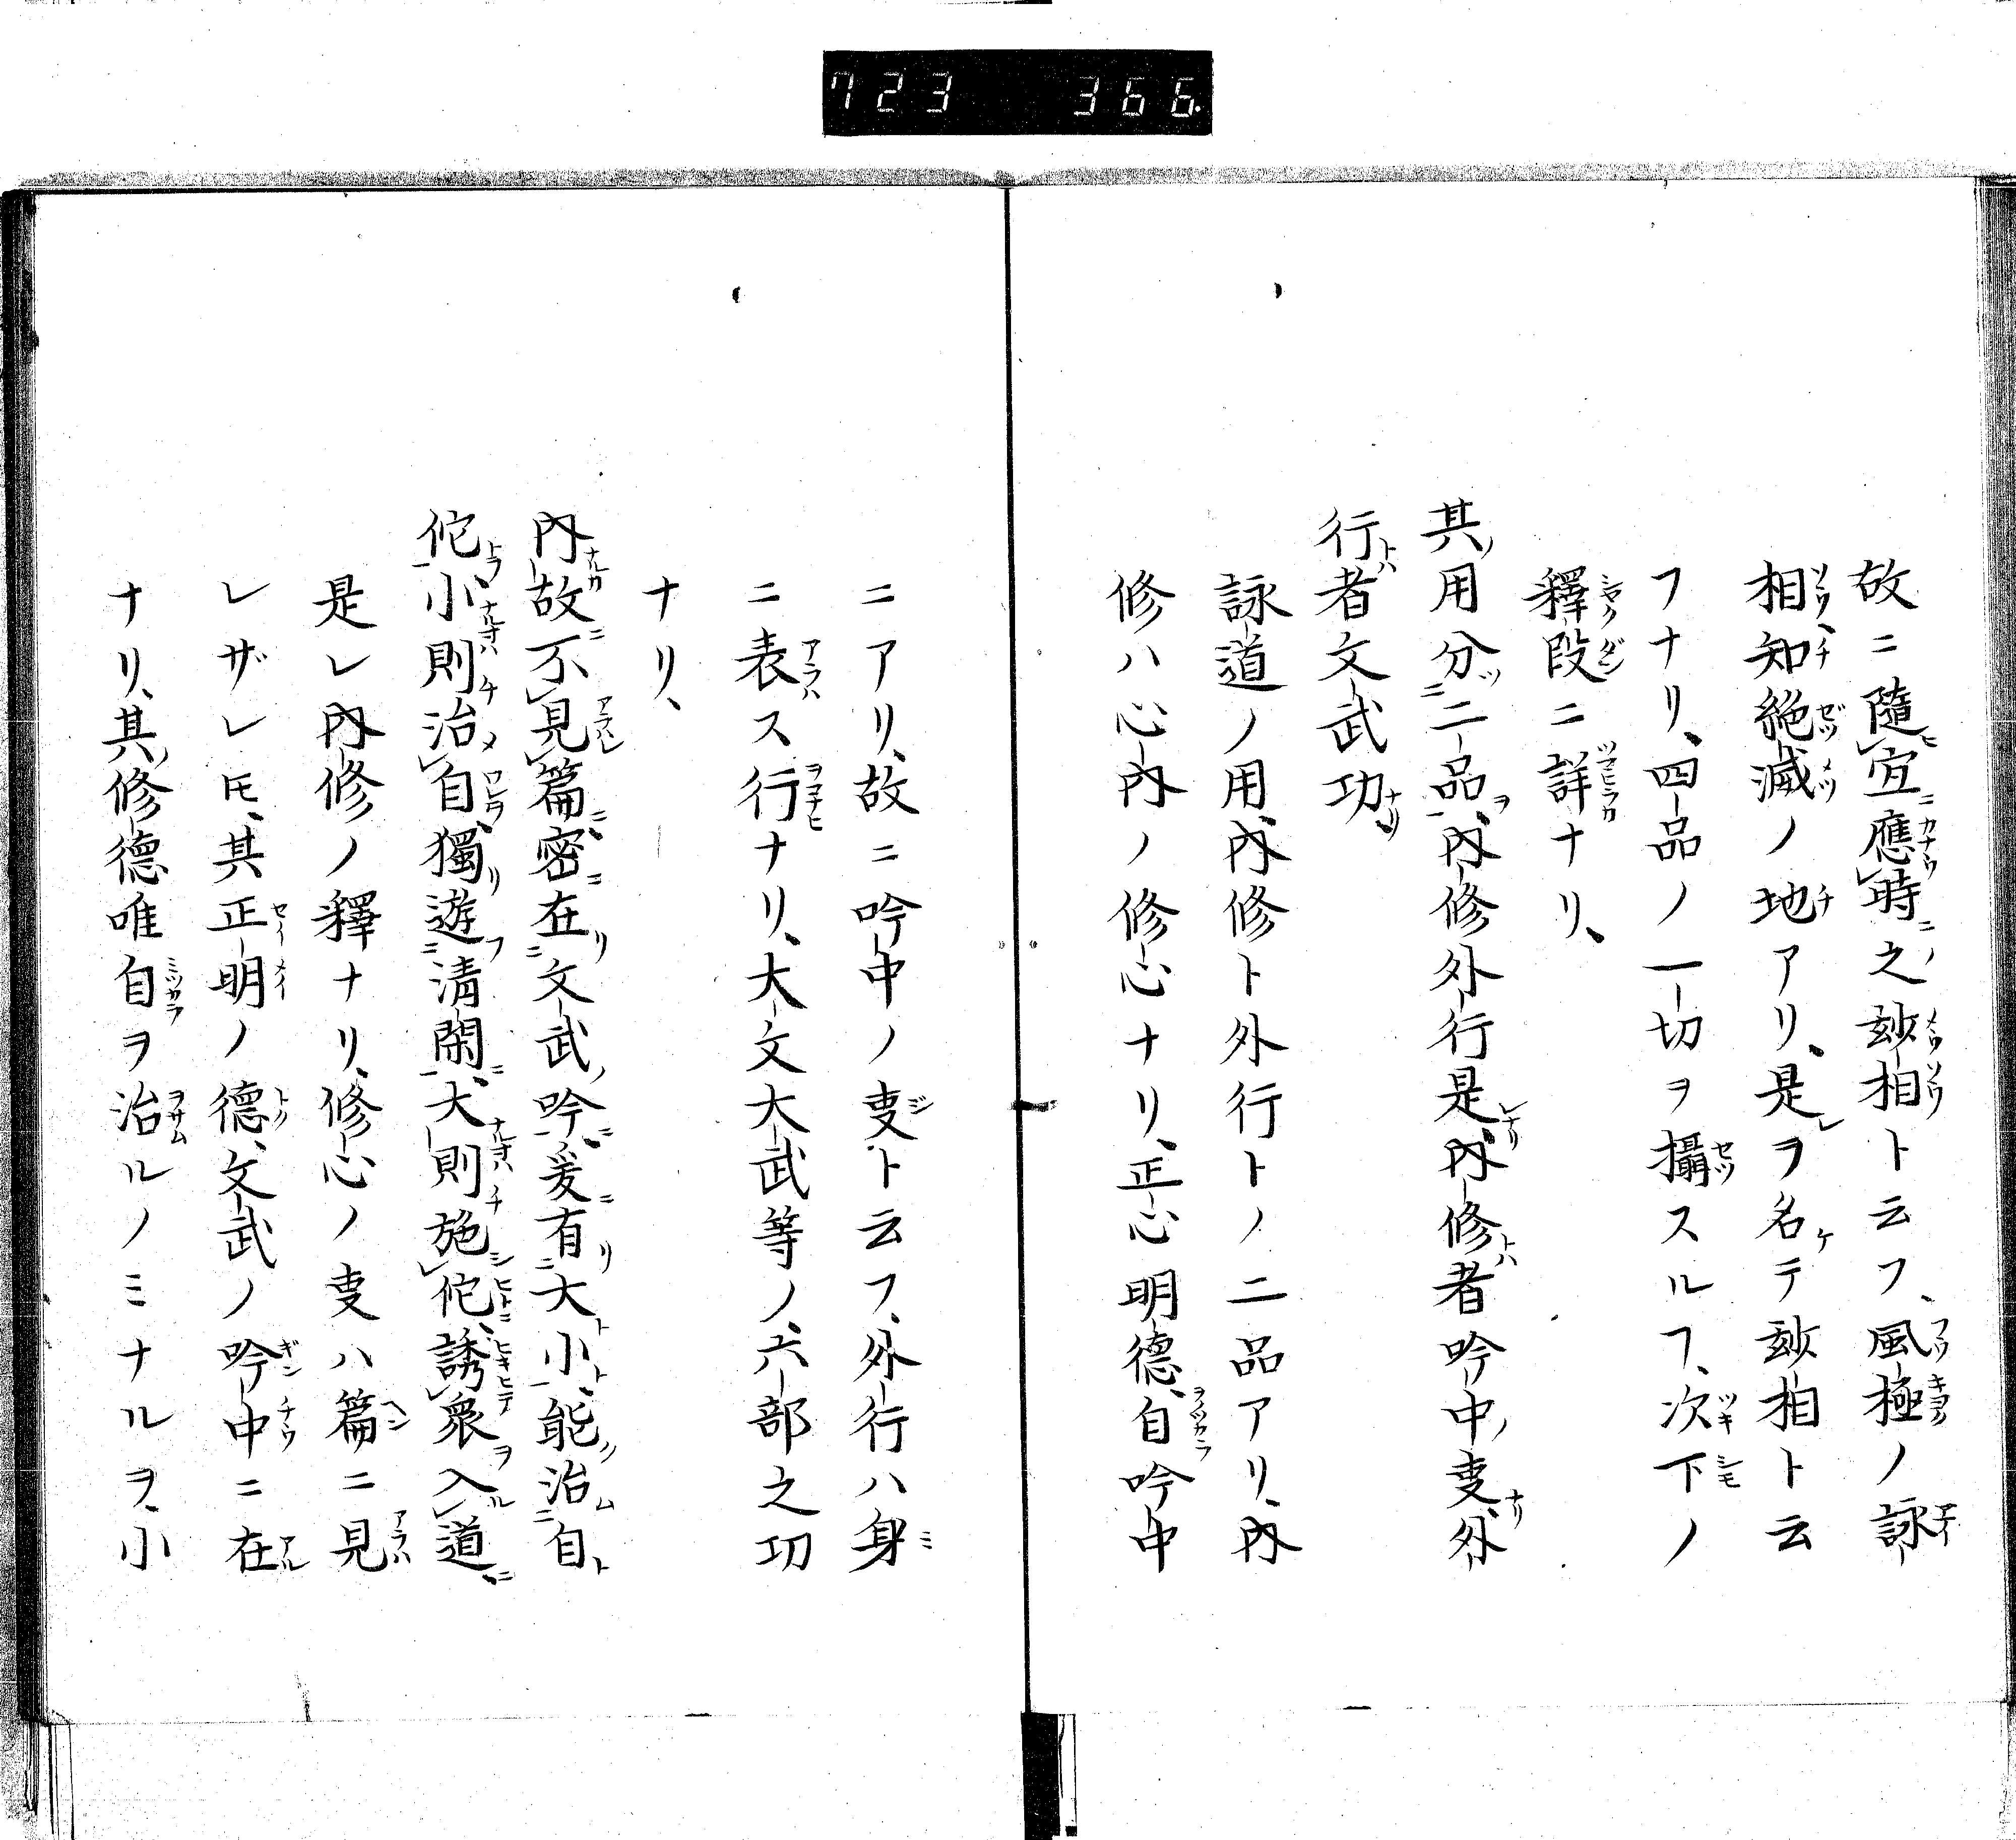 723 366
故ニ隨宜應時之玅相ト云フ、風極ノ詠
相知絶滅ノ地アリ、是ヲ名テ玅相ト云
フナリ、四品ノ一切ヲ攝スルフ、次下ノ
釋段ニ詳ナリ、
其用分二品、内修外行是、内修者吟中叓、外
行者文武功
詠道ノ用、内修ト外行トノ二品アリ、内
修ハ心内ノ修心ナリ、正心明德、自吟中
ニアリ、故ニ吟中ノ叓ト云フ、外行ハ身
ニ表ス行ナリ、大文大武等ノ、六部之功
ナリ、
内故不見篇、密在文武吟、爰有大小、能治自
佗、小則治自、獨遊清閑、大則施佗、誘衆入道
是レ内修ノ釋ナリ、修心ノ叓ハ篇ニ見
レザレ𪜈、其正明ノ德、文武ノ吟中ニ在
ナリ、其修德唯自ヲ治ルノミナルヲ、小